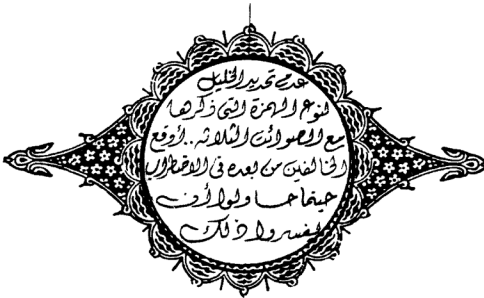 عدم تحديد الخليل
لنوع الهمزة التي ذكرها
مع الصوائت الثلاثة.. أوقع
الخالفين من بعده في الاضطراب
حينما حاولوا أن
يفسروا ذلك